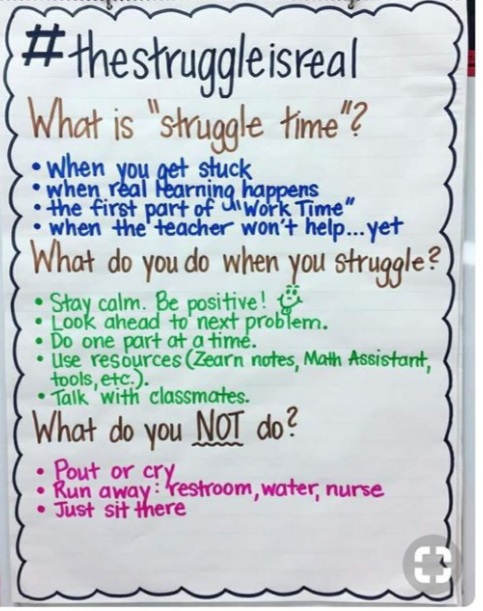 #thestruggleisreal
What is "struggle time"?
• When you get stuck
• when real learning happens
• the first part of "Work Time"
• when the teacher won't help...yet
What do you do when you struggle?
• Stay calm. Be positive!
• Look ahead to next problem.
• Do one part at a time.
• Use resources (Zearn notes, Math Assistant,
tools, etc.).
• Talk with classmates.
What do you NOT do?
• Pout or cry
• Run away: restroom, water, nurse
• Just sit there